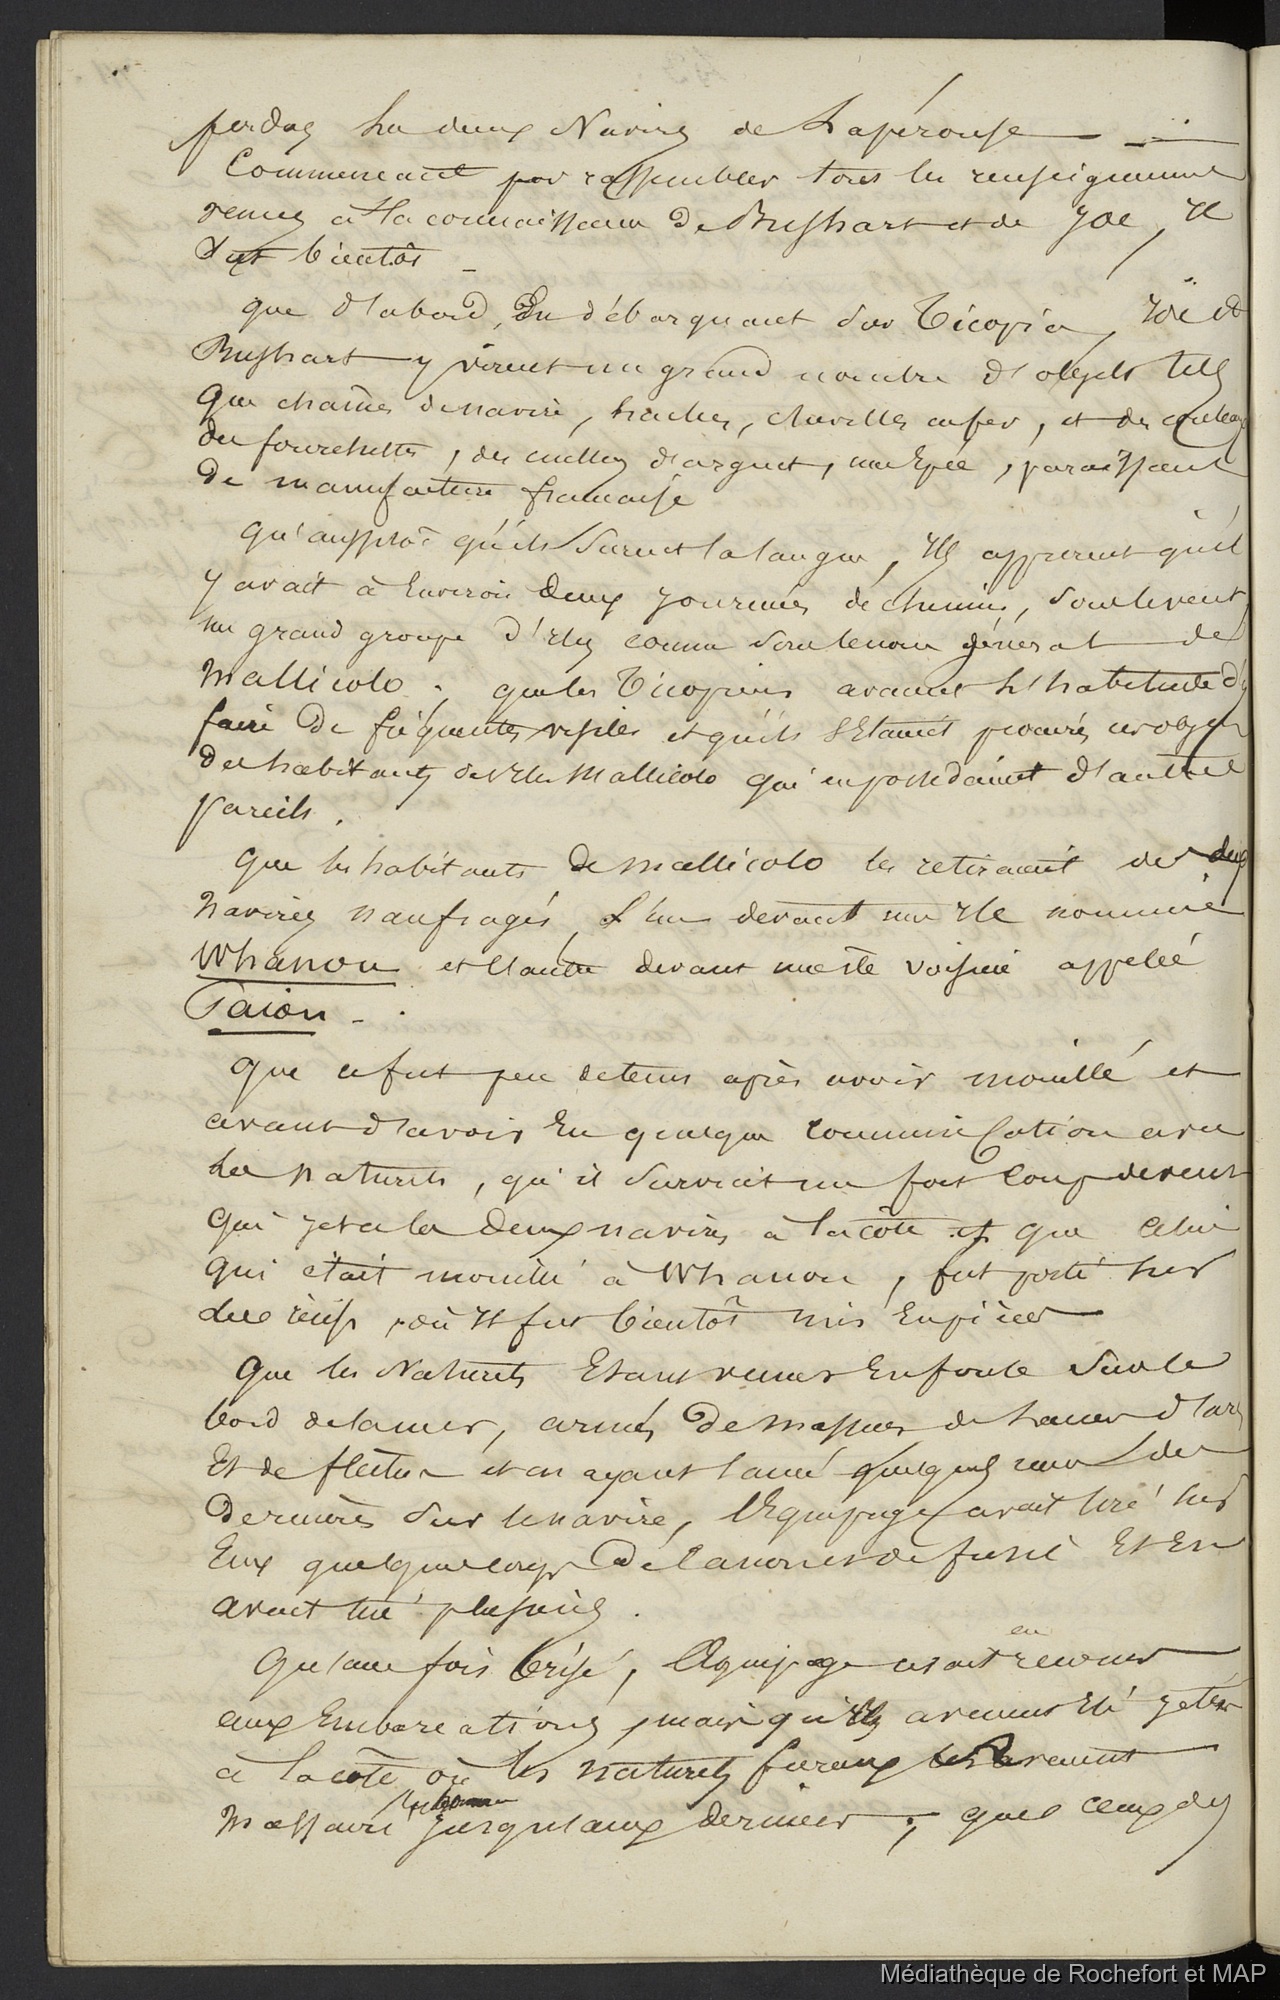 perdus les deux Navires de Lapérouse
Commencant par rassembler tous les renseignemens
venus à la connaissance de Bushart et de Joe, Il
Sut bientôt
que d'abord, En débarquant sur Ticopia, Joë et
Bushart y virent un grand nombre d'objets tels
que chaînes de navire, haches, chevilles en fer, et des couteaux
des fourchettes, des cuillers d'argent, une Epée, paraissant
De manufacture francaise
qu'aussitôt qu'ils Surent la langue, Ils apprirent qu'il
y avait à Environ Deux journées de chemin, sous le vent
un grand groupe d'Iles connu sous le nom général de
Mallicolo. que les Ticopiens avaient l'habitude d'y
faire De fréquentes visites et qu'ils s'Etaient procurés ces objets
Des habitants des Iles Mallicolo qui en possédaient d'autres
pareils.
Que les habitants De Mallicolo les retiraient des deux
Navires naufragés, l'un devant une Ile nommée
Whanou et l'autre devant une île voisine appelée
Païou -.
Que ce fut peu de tems après avoir mouillé et
avant d'avoir Eu quelque communication avec
les naturels, qu'il survint un fort coup de vent
qui jeta les Deux navires à la côte et que celui
qui était mouillé à Whanou, fut porté sur
des récifs, où Il fut bientôt mis En pièces
Que les Naturels Etant venus En foule sur le
bord de la mer, armés De massues de lances d'arcs
Et de flèches et en ayant lancé quelques unes de ces
Dernières sur le navire, l'Equipage avait tiré sur
Eux quelques coups De canon et de fusil Et En
avait tué plusieurs.
Qu'une fois brisé, l'Equipage avait en recours
aux Embarcations, mais qu'Ils avaient Eté jetés
à la côte où les naturels furieux les avaient
Massacré jusqu'aux derniers; que ceux des
Médiathèque de Rochefort et MAP